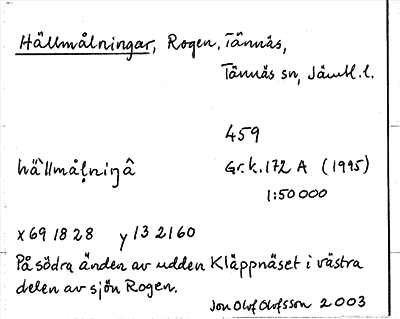 Hällmålningar, Rogen, Tännäs,
Tännäs sn, Jämtl. l.
459
hä`llmåḷniŋâ Gr.k.172 A (1995)
1:50 000
x 69 18 28 y 13 21 60
På södra änden av udden Kläppnäset i västra
delen av sjön Rogen.
Jon Olof Olofsson 2003